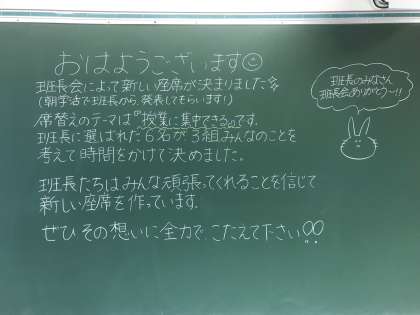 おはようございます
班長会によって新しい座席が決まりました
(朝学活で班長から、発表してもらいます！)
席替えのテーマは『授業に集中できる』です。
班長に選ばれた6名が3組みんなのことを
考えて時間をかけて決めました。
班長たちはみんな頑張ってくれることを信じて
新しい座席を作っています。
ぜひその想いに全力で、こたえて下さい!!
班長のみなさん
班長会ありがとう〜!!